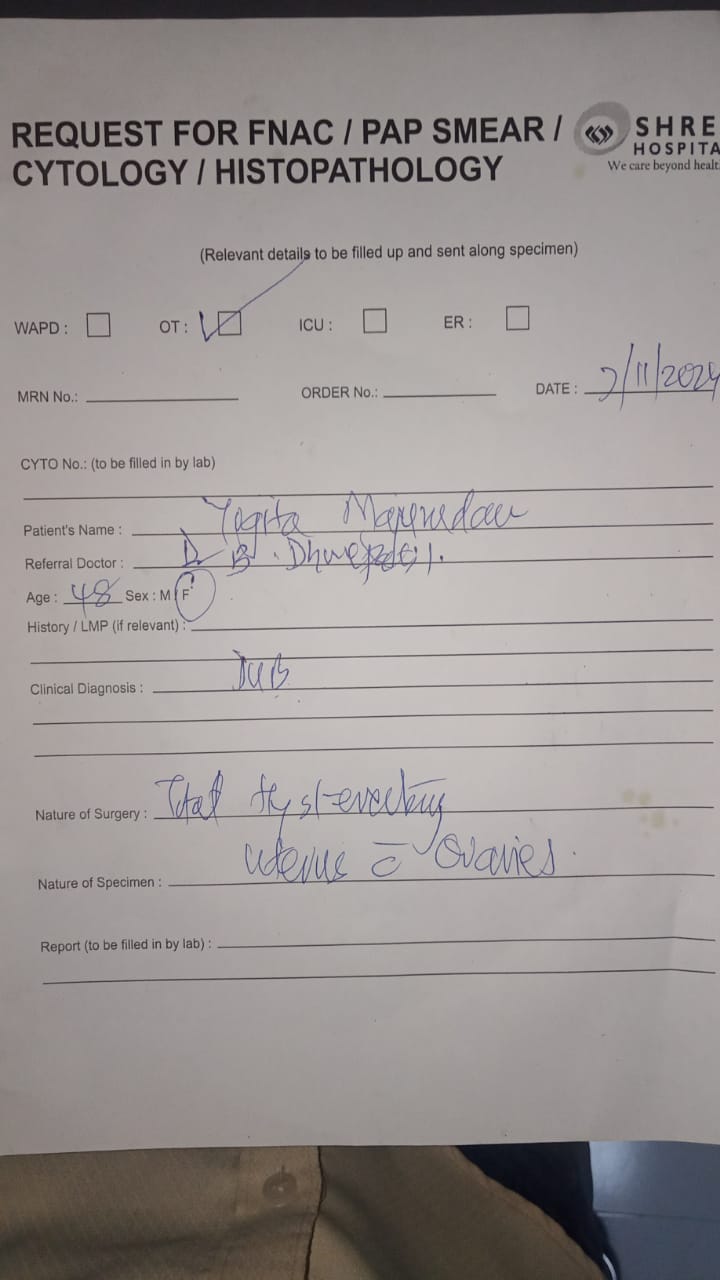 REQUEST FOR FNAC / PAP SMEAR /
CYTOLOGY / HISTOPATHOLOGY
SHRE
HOSPITA
We care beyond healt
(Relevant details to be filled up and sent along specimen)
WAPD : OT : ICU : ER :
MRN No.: ORDER No.: DATE : 2/11/2024
CYTO No.: (to be filled in by lab)
Patient's Name : Yogita
Referral Doctor : Dr B.
Age : 48 Sex : M / F
History / LMP (if relevant) :
Clinical Diagnosis : DUB
Nature of Surgery : Total Hysterectomy
Nature of Specimen : Uterus c̄ Ovaries.
Report (to be filled in by lab) :